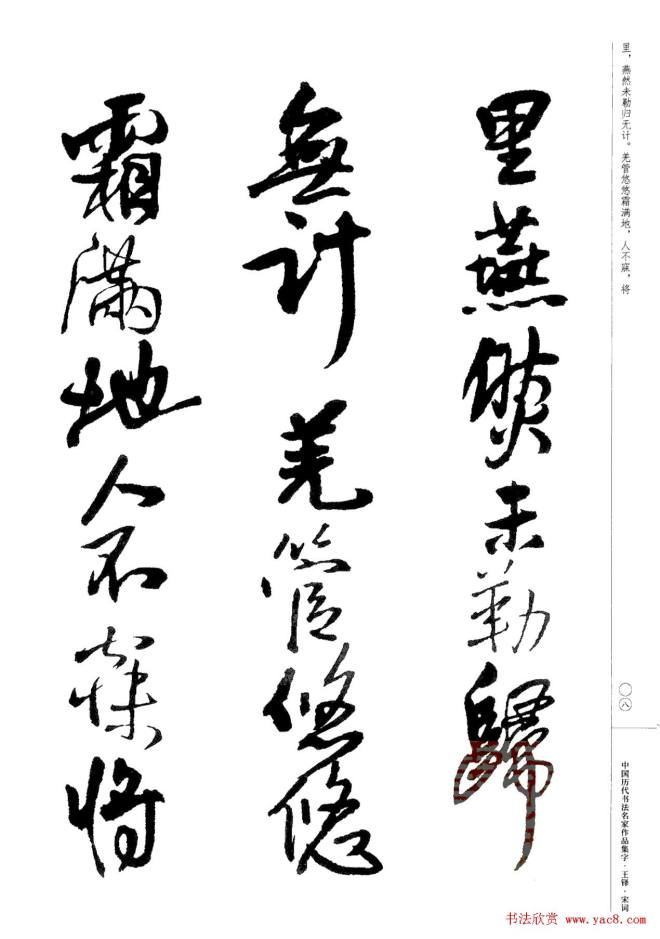 里，燕然未勒归无计。羌管悠悠霜满地，人不寐，将
里燕然未勒歸
無計羌管悠悠
霜滿地人不寐將
〇八
中国历代书法名家作品集字·王铎·宋词
书法欣赏
www.yac8.com